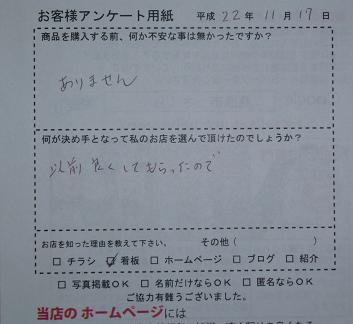 お客様アンケート用紙 平成 22 年 11 月 19 日
商品を購入する前、何か不安な事は無かったですか？
ありません
何が決め手となって私のお店を選んで頂けたのでしょうか？
以前良くしてもらったので
お店を知った理由を教えて下さい。 その他（ ）
□ チラシ ☑ 看板 □ ホームページ □ ブログ □ 紹介
□ 写真掲載OK □ 名前だけならOK □ 匿名ならOK
ご協力有難うございました。
当店のホームページには